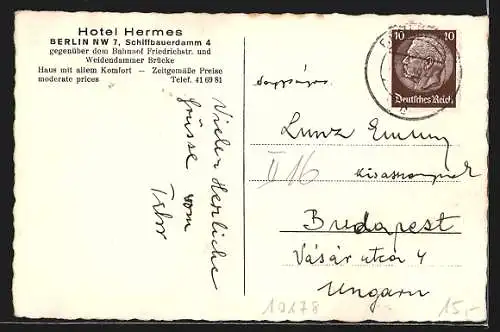 Hotel Hermes
BERLIN NW 7, Schiffbauerdamm 4
gegenüber dem Bahnhof Friedrichstr. und
Weidendammer Brücke
Haus mit allem Komfort — Zeitgemäße Preise
moderate prices Telef. 41 69 81
Vielen Herzliche
Grüsse vom
10 10
Deutsches Reich
Lunz
II 16
Budapest
Vásár utca 4
Ungarn
10178
15,-